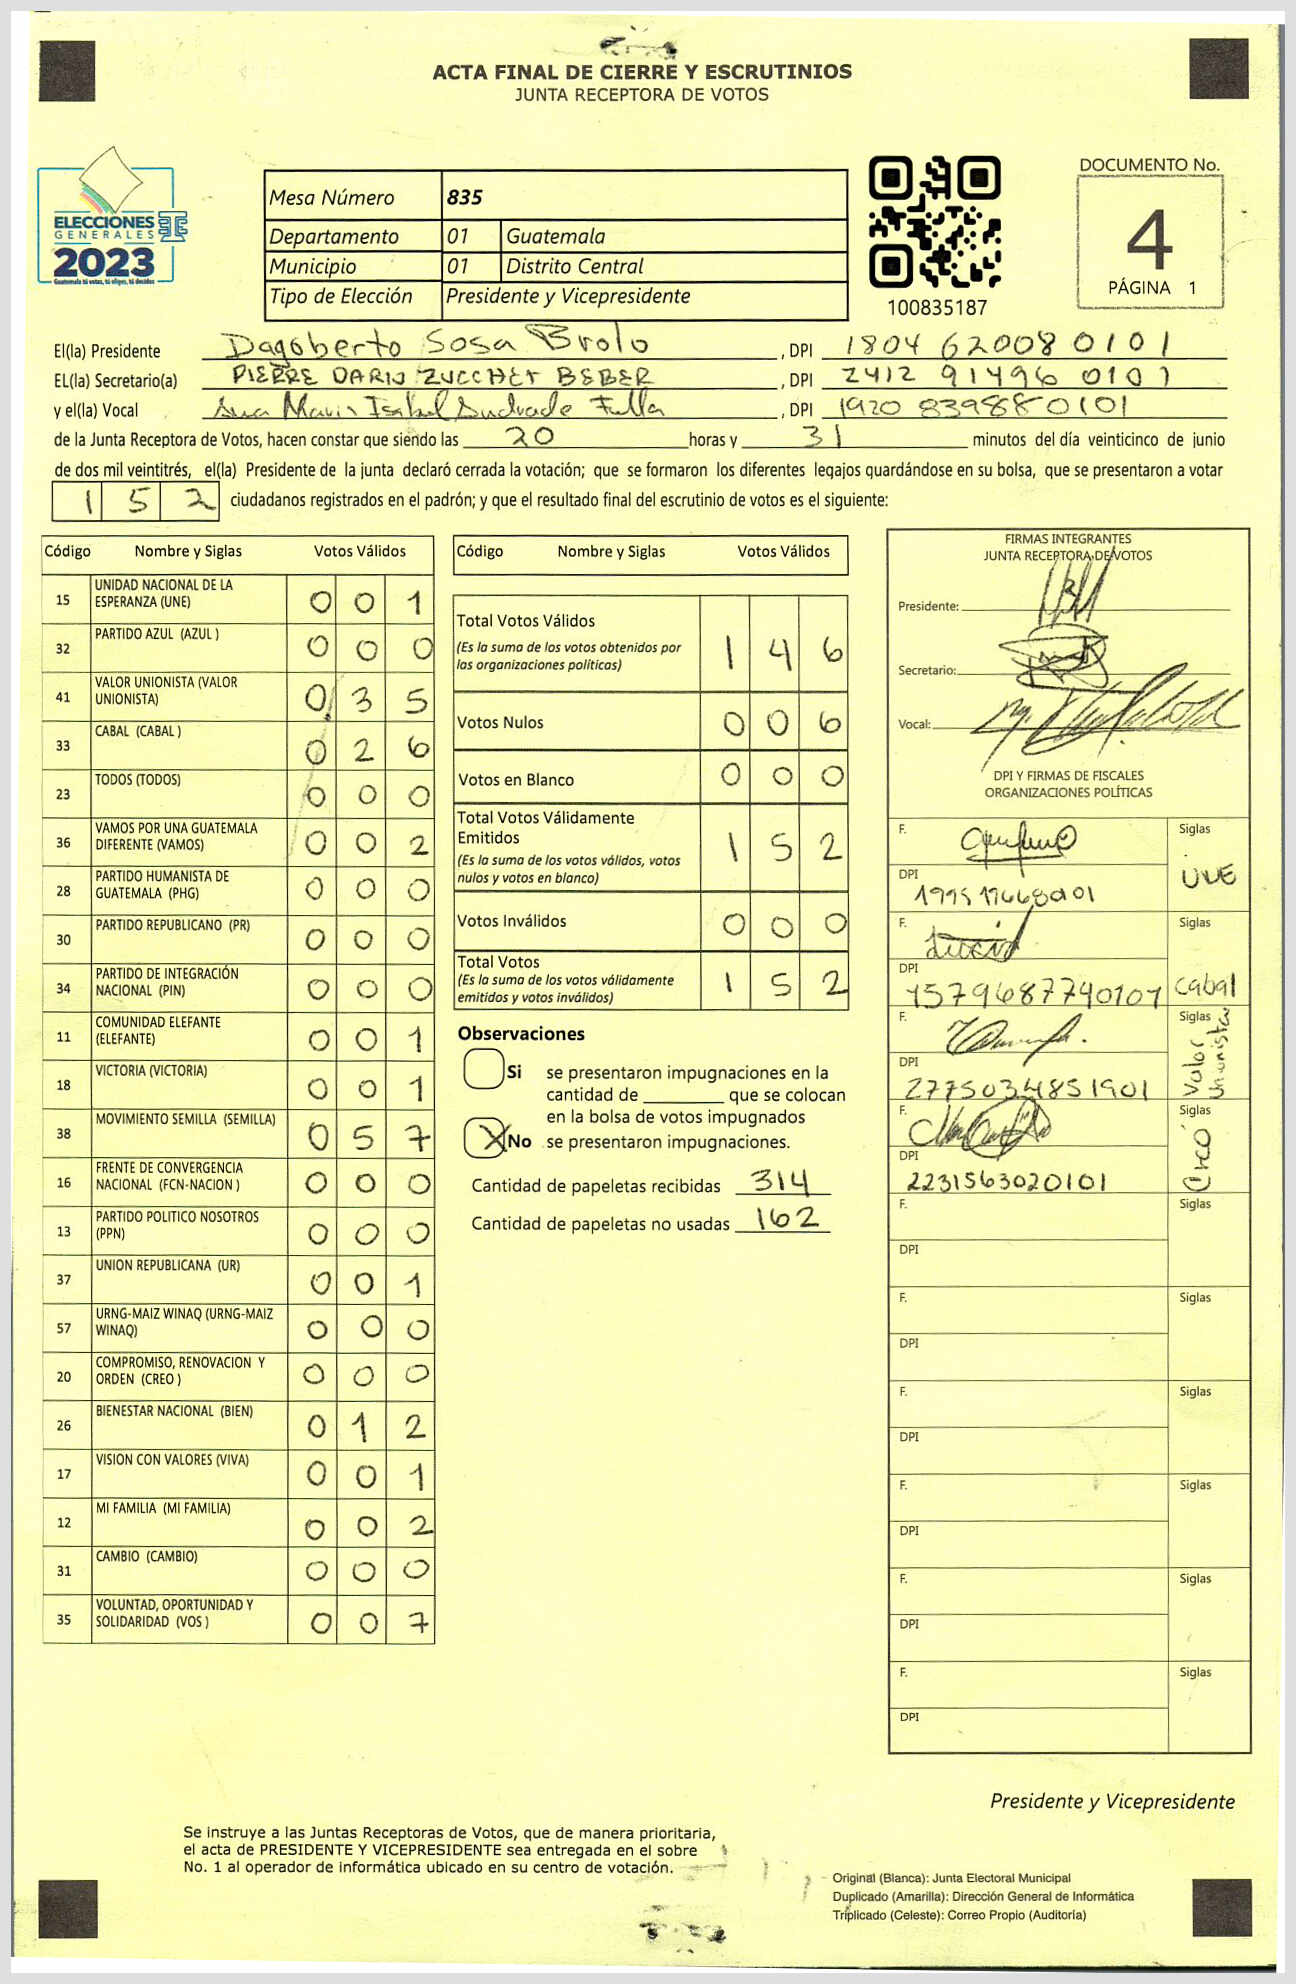 ACTA FINAL DE CIERRE Y ESCRUTINIOS
JUNTA RECEPTORA DE VOTOS
ELECCIONES
GENERALES
2023
Guatemala tú votas, tú eliges, tú decides
Mesa Número 835
Departamento 01 Guatemala
Municipio 01 Distrito Central
Tipo de Elección Presidente y Vicepresidente
100835187
DOCUMENTO No.
4
PÁGINA 1
El(la) Presidente Dagoberto Sosa Brolo , DPI 1804 62008 0101
EL(la) Secretario(a) PIERRE DARIO ZUCCHET BEBER , DPI 2412 91496 0101
y el(la) Vocal Maria Isabel Andrade Fulla , DPI 1920 83988 0101
de la Junta Receptora de Votos, hacen constar que siendo las 20 horas y 31 minutos del día veinticinco de junio
de dos mil veintitrés, el(la) Presidente de la junta declaró cerrada la votación; que se formaron los diferentes legajos guardándose en su bolsa, que se presentaron a votar
152 ciudadanos registrados en el padrón; y que el resultado final del escrutinio de votos es el siguiente:
Código Nombre y Siglas Votos Válidos
15 UNIDAD NACIONAL DE LA ESPERANZA (UNE) 0 0 1
32 PARTIDO AZUL (AZUL ) 0 0 0
41 VALOR UNIONISTA (VALOR UNIONISTA) 0 3 5
33 CABAL (CABAL ) 0 2 6
23 TODOS (TODOS) 0 0 0
36 VAMOS POR UNA GUATEMALA DIFERENTE (VAMOS) 0 0 2
28 PARTIDO HUMANISTA DE GUATEMALA (PHG) 0 0 0
30 PARTIDO REPUBLICANO (PR) 0 0 0
34 PARTIDO DE INTEGRACIÓN NACIONAL (PIN) 0 0 0
11 COMUNIDAD ELEFANTE (ELEFANTE) 0 0 1
18 VICTORIA (VICTORIA) 0 0 1
38 MOVIMIENTO SEMILLA (SEMILLA) 0 5 7
16 FRENTE DE CONVERGENCIA NACIONAL (FCN-NACION ) 0 0 0
13 PARTIDO POLITICO NOSOTROS (PPN) 0 0 0
37 UNION REPUBLICANA (UR) 0 0 1
57 URNG-MAIZ WINAQ (URNG-MAIZ WINAQ) 0 0 0
20 COMPROMISO, RENOVACION Y ORDEN (CREO ) 0 0 0
26 BIENESTAR NACIONAL (BIEN) 0 1 2
17 VISION CON VALORES (VIVA) 0 0 1
12 MI FAMILIA (MI FAMILIA) 0 0 2
31 CAMBIO (CAMBIO) 0 0 0
35 VOLUNTAD, OPORTUNIDAD Y SOLIDARIDAD (VOS ) 0 0 7
Código Nombre y Siglas Votos Válidos
Total Votos Válidos 1 4 6
(Es la suma de los votos obtenidos por
las organizaciones políticas)
Votos Nulos 0 0 6
Votos en Blanco 0 0 0
Total Votos Válidamente
Emitidos 1 5 2
(Es la suma de los votos válidos, votos
nulos y votos en blanco)
Votos Inválidos 0 0 0
Total Votos 1 5 2
(Es la suma de los votos válidamente
emitidos y votos inválidos)
Observaciones
Si se presentaron impugnaciones en la
cantidad de ________ que se colocan
en la bolsa de votos impugnados
X No se presentaron impugnaciones.
Cantidad de papeletas recibidas 314
Cantidad de papeletas no usadas 162
FIRMAS INTEGRANTES
JUNTA RECEPTORA DE VOTOS
Presidente:
Secretario:
Vocal:
DPI Y FIRMAS DE FISCALES
ORGANIZACIONES POLÍTICAS
F. Siglas
DPI UNE
F. Siglas
DPI 1579687740101 Cabal
F. Siglas
DPI 2775034851901 Valor Unionista
F. Siglas
DPI 2231563020101 Creo
F. Siglas
DPI
F. Siglas
DPI
F. Siglas
DPI
F. Siglas
DPI
F. Siglas
DPI
F. Siglas
DPI
Presidente y Vicepresidente
Se instruye a las Juntas Receptoras de Votos, que de manera prioritaria,
el acta de PRESIDENTE Y VICEPRESIDENTE sea entregada en el sobre
No. 1 al operador de informática ubicado en su centro de votación.
Original (Blanca): Junta Electoral Municipal
Duplicado (Amarilla): Dirección General de Informática
Triplicado (Celeste): Correo Propio (Auditoría)